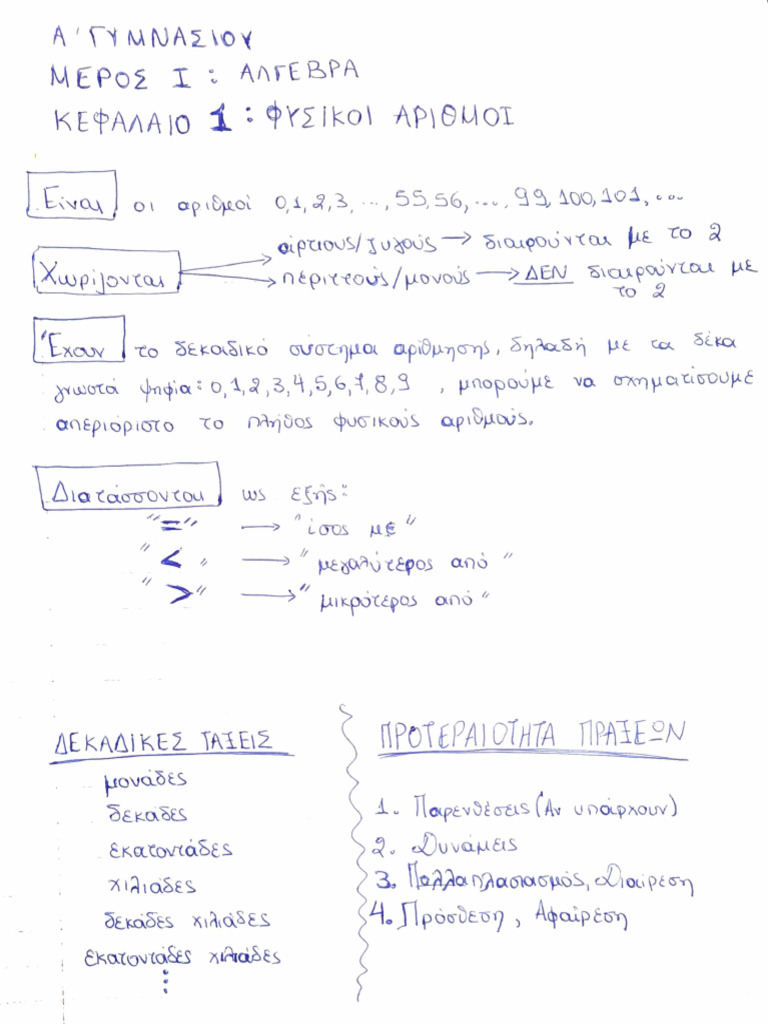 Α΄ ΓΥΜΝΑΣΙΟΥ
ΜΕΡΟΣ Ι : ΑΛΓΕΒΡΑ
ΚΕΦΑΛΑΙΟ 1 : ΦΥΣΙΚΟΙ ΑΡΙΘΜΟΙ
Είναι οι αριθμοί 0,1,2,3,...,55,56,...,99,100,101,...
Χωρίζονται → άρτιους/ζυγούς → διαιρούνται με το 2
→ περιττούς/μονούς → ΔΕΝ διαιρούνται με
το 2
Έχουν το δεκαδικό σύστημα αρίθμησης, δηλαδή με τα δέκα
γνωστά ψηφία: 0,1,2,3,4,5,6,7,8,9 , μπορούμε να σχηματίσουμε
απεριόριστο το πλήθος φυσικούς αριθμούς.
Διατάσσονται ως εξής:
"=" → "ίσος με"
"<" → "μεγαλύτερος από"
">" → "μικρότερος από"
ΔΕΚΑΔΙΚΕΣ ΤΑΞΕΙΣ
μονάδες
δεκάδες
εκατοντάδες
χιλιάδες
δεκάδες χιλιάδες
εκατοντάδες χιλιάδες
⋮
ΠΡΟΤΕΡΑΙΟΤΗΤΑ ΠΡΑΞΕΩΝ
1. Παρενθέσεις (Αν υπάρχουν)
2. Δυνάμεις
3. Πολλαπλασιασμός, Διαίρεση
4. Πρόσθεση, Αφαίρεση